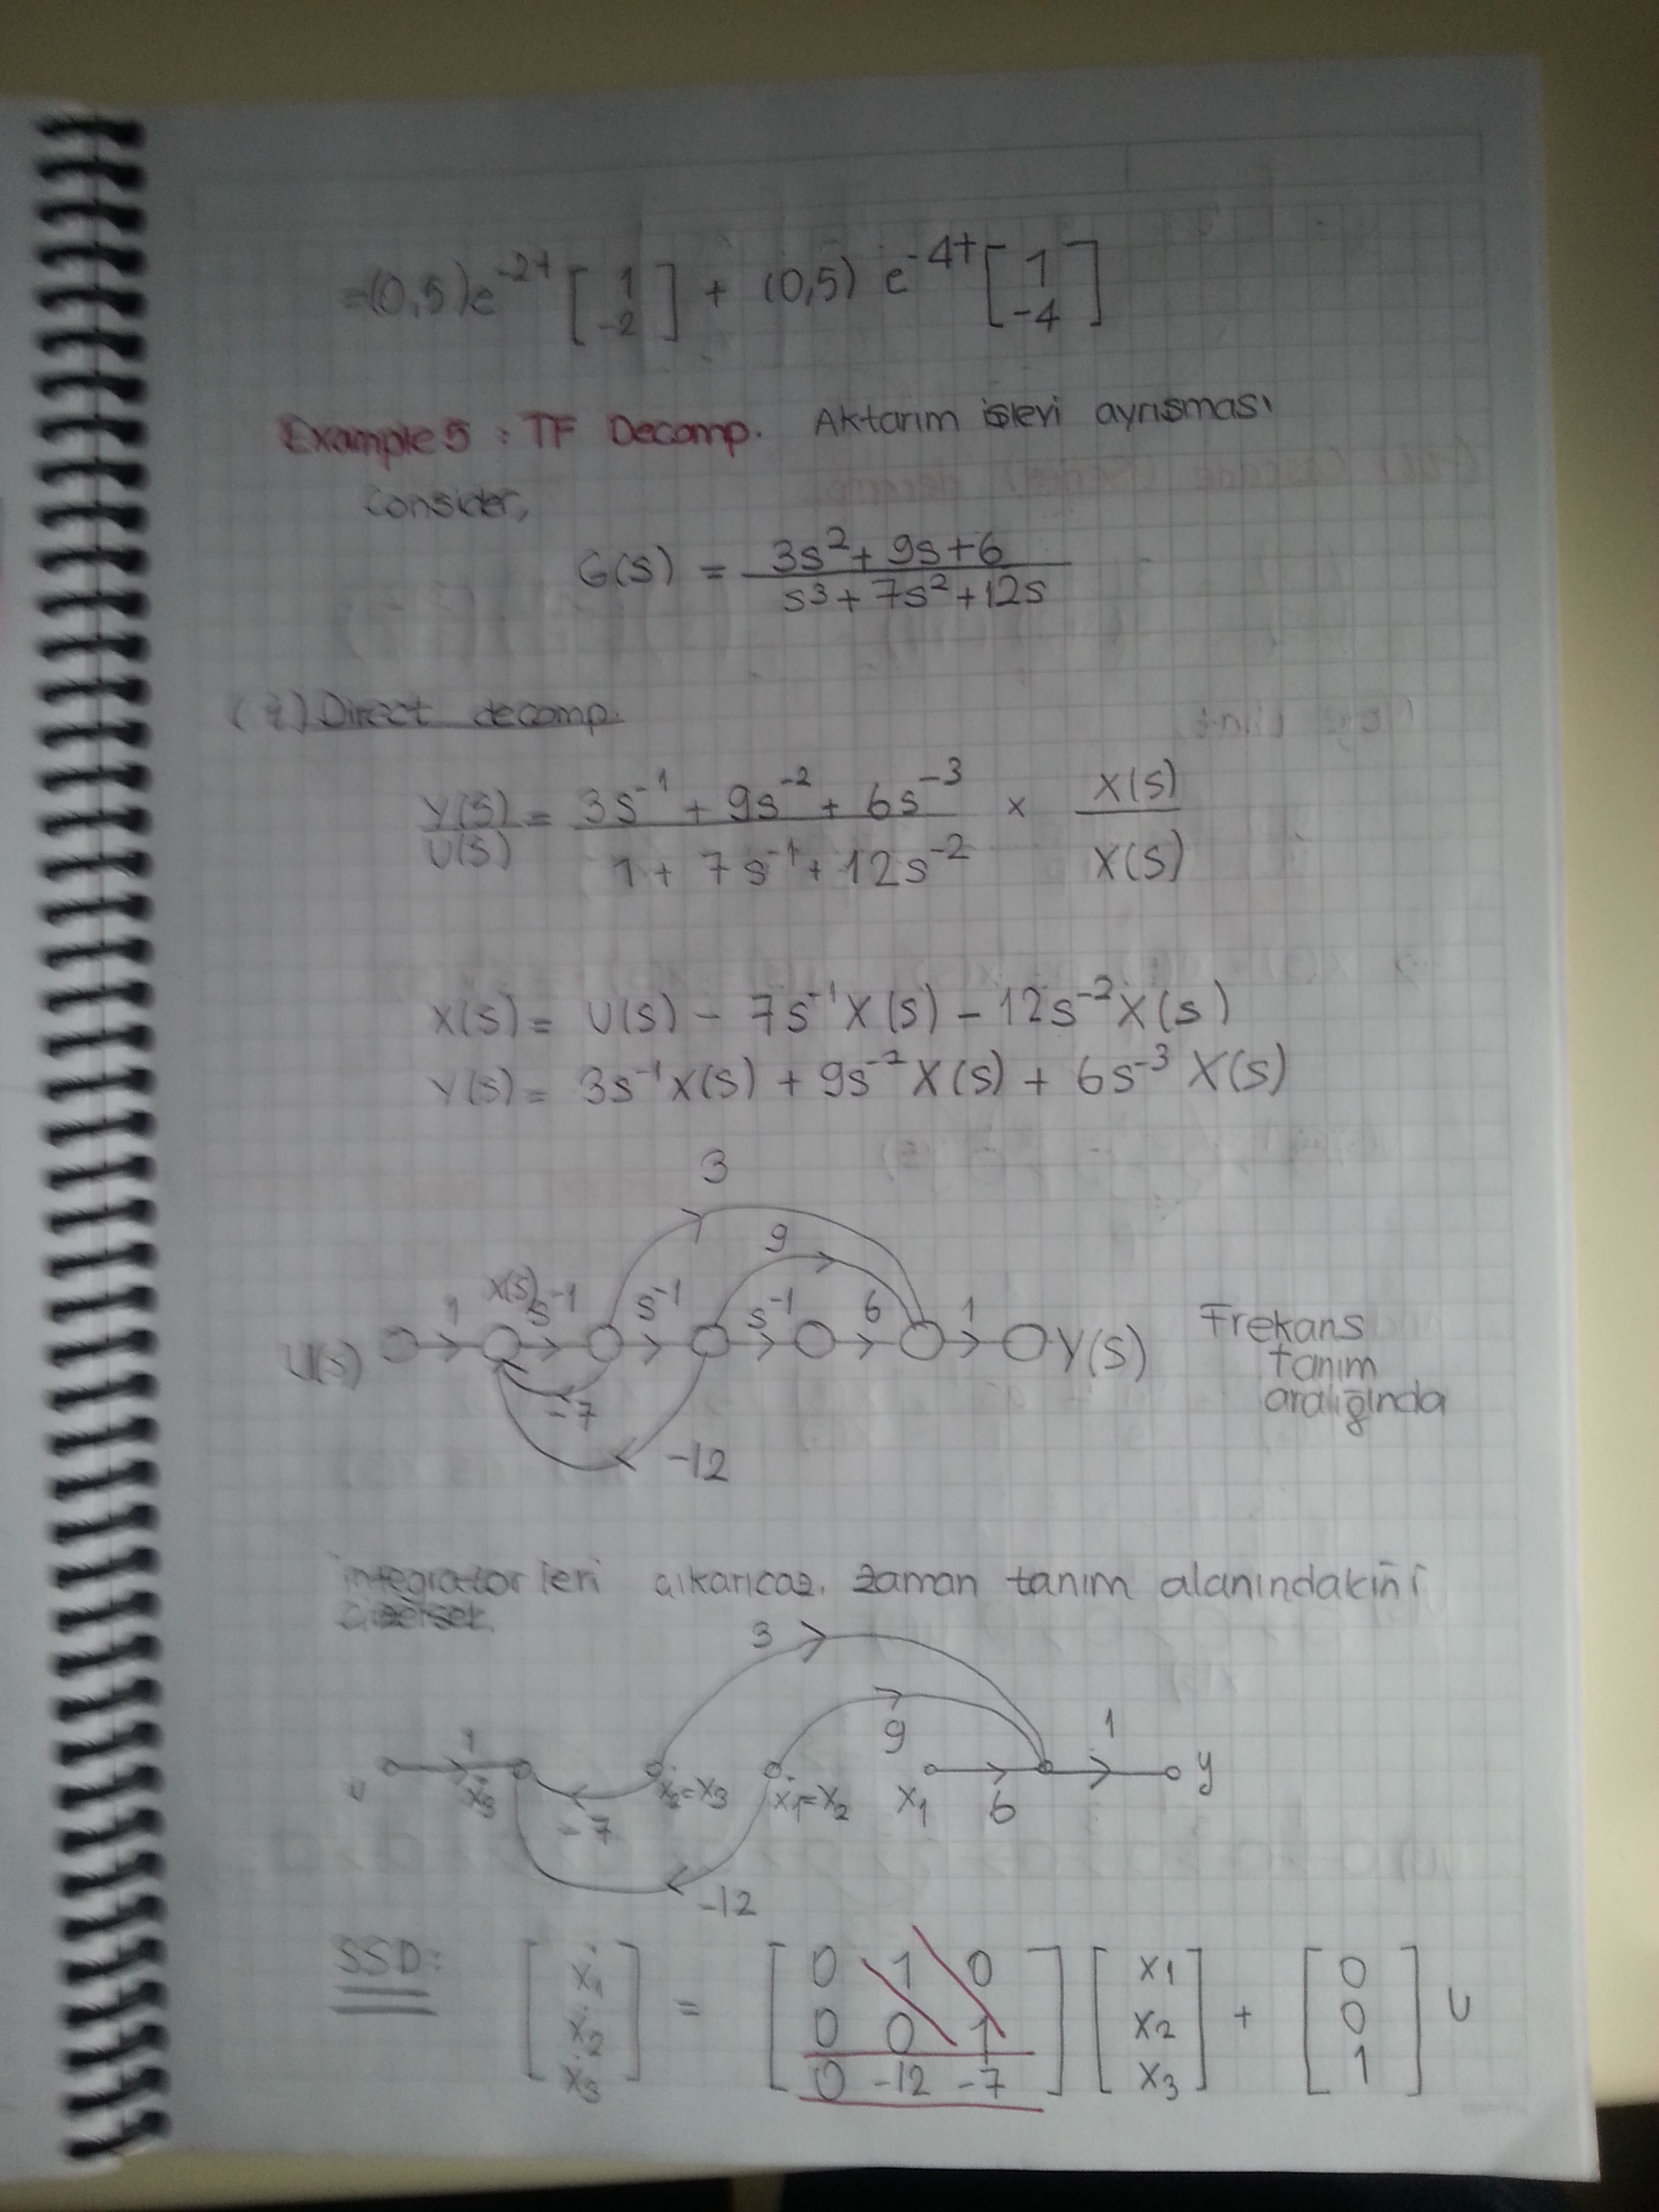 =(0,5)e^-2t [1 -2] + (0,5) e^-4t [1 -4]
Example 5 : TF Decomp. Aktarım işlevi ayrışması
Consider,
G(s) = (3s² + 9s + 6) / (s³ + 7s² + 12s)
(i) Direct decomp.
Y(s)/U(s) = (3s^-1 + 9s^-2 + 6s^-3) / (1 + 7s^-1 + 12s^-2) × X(s)/X(s)
X(s) = U(s) - 7s^-1 X(s) - 12s^-2 X(s)
Y(s) = 3s^-1 X(s) + 9s^-2 X(s) + 6s^-3 X(s)
3
9
U(s) 1 X(s) s^-1 s^-1 s^-1 6 1 Y(s)
-7
-12
Frekans
tanım
aralığında
integratorleri çıkarıcaz. Zaman tanım alanındakini
çizersek.
3
9
u 1 ẋ3 ẋ2=x3 ẋ1=x2 x1 6 1 y
-7
-12
SSD: [ẋ1 ẋ2 ẋ3] = [0 1 0 0 0 1 0 -12 -7] [x1 x2 x3] + [0 0 1] U